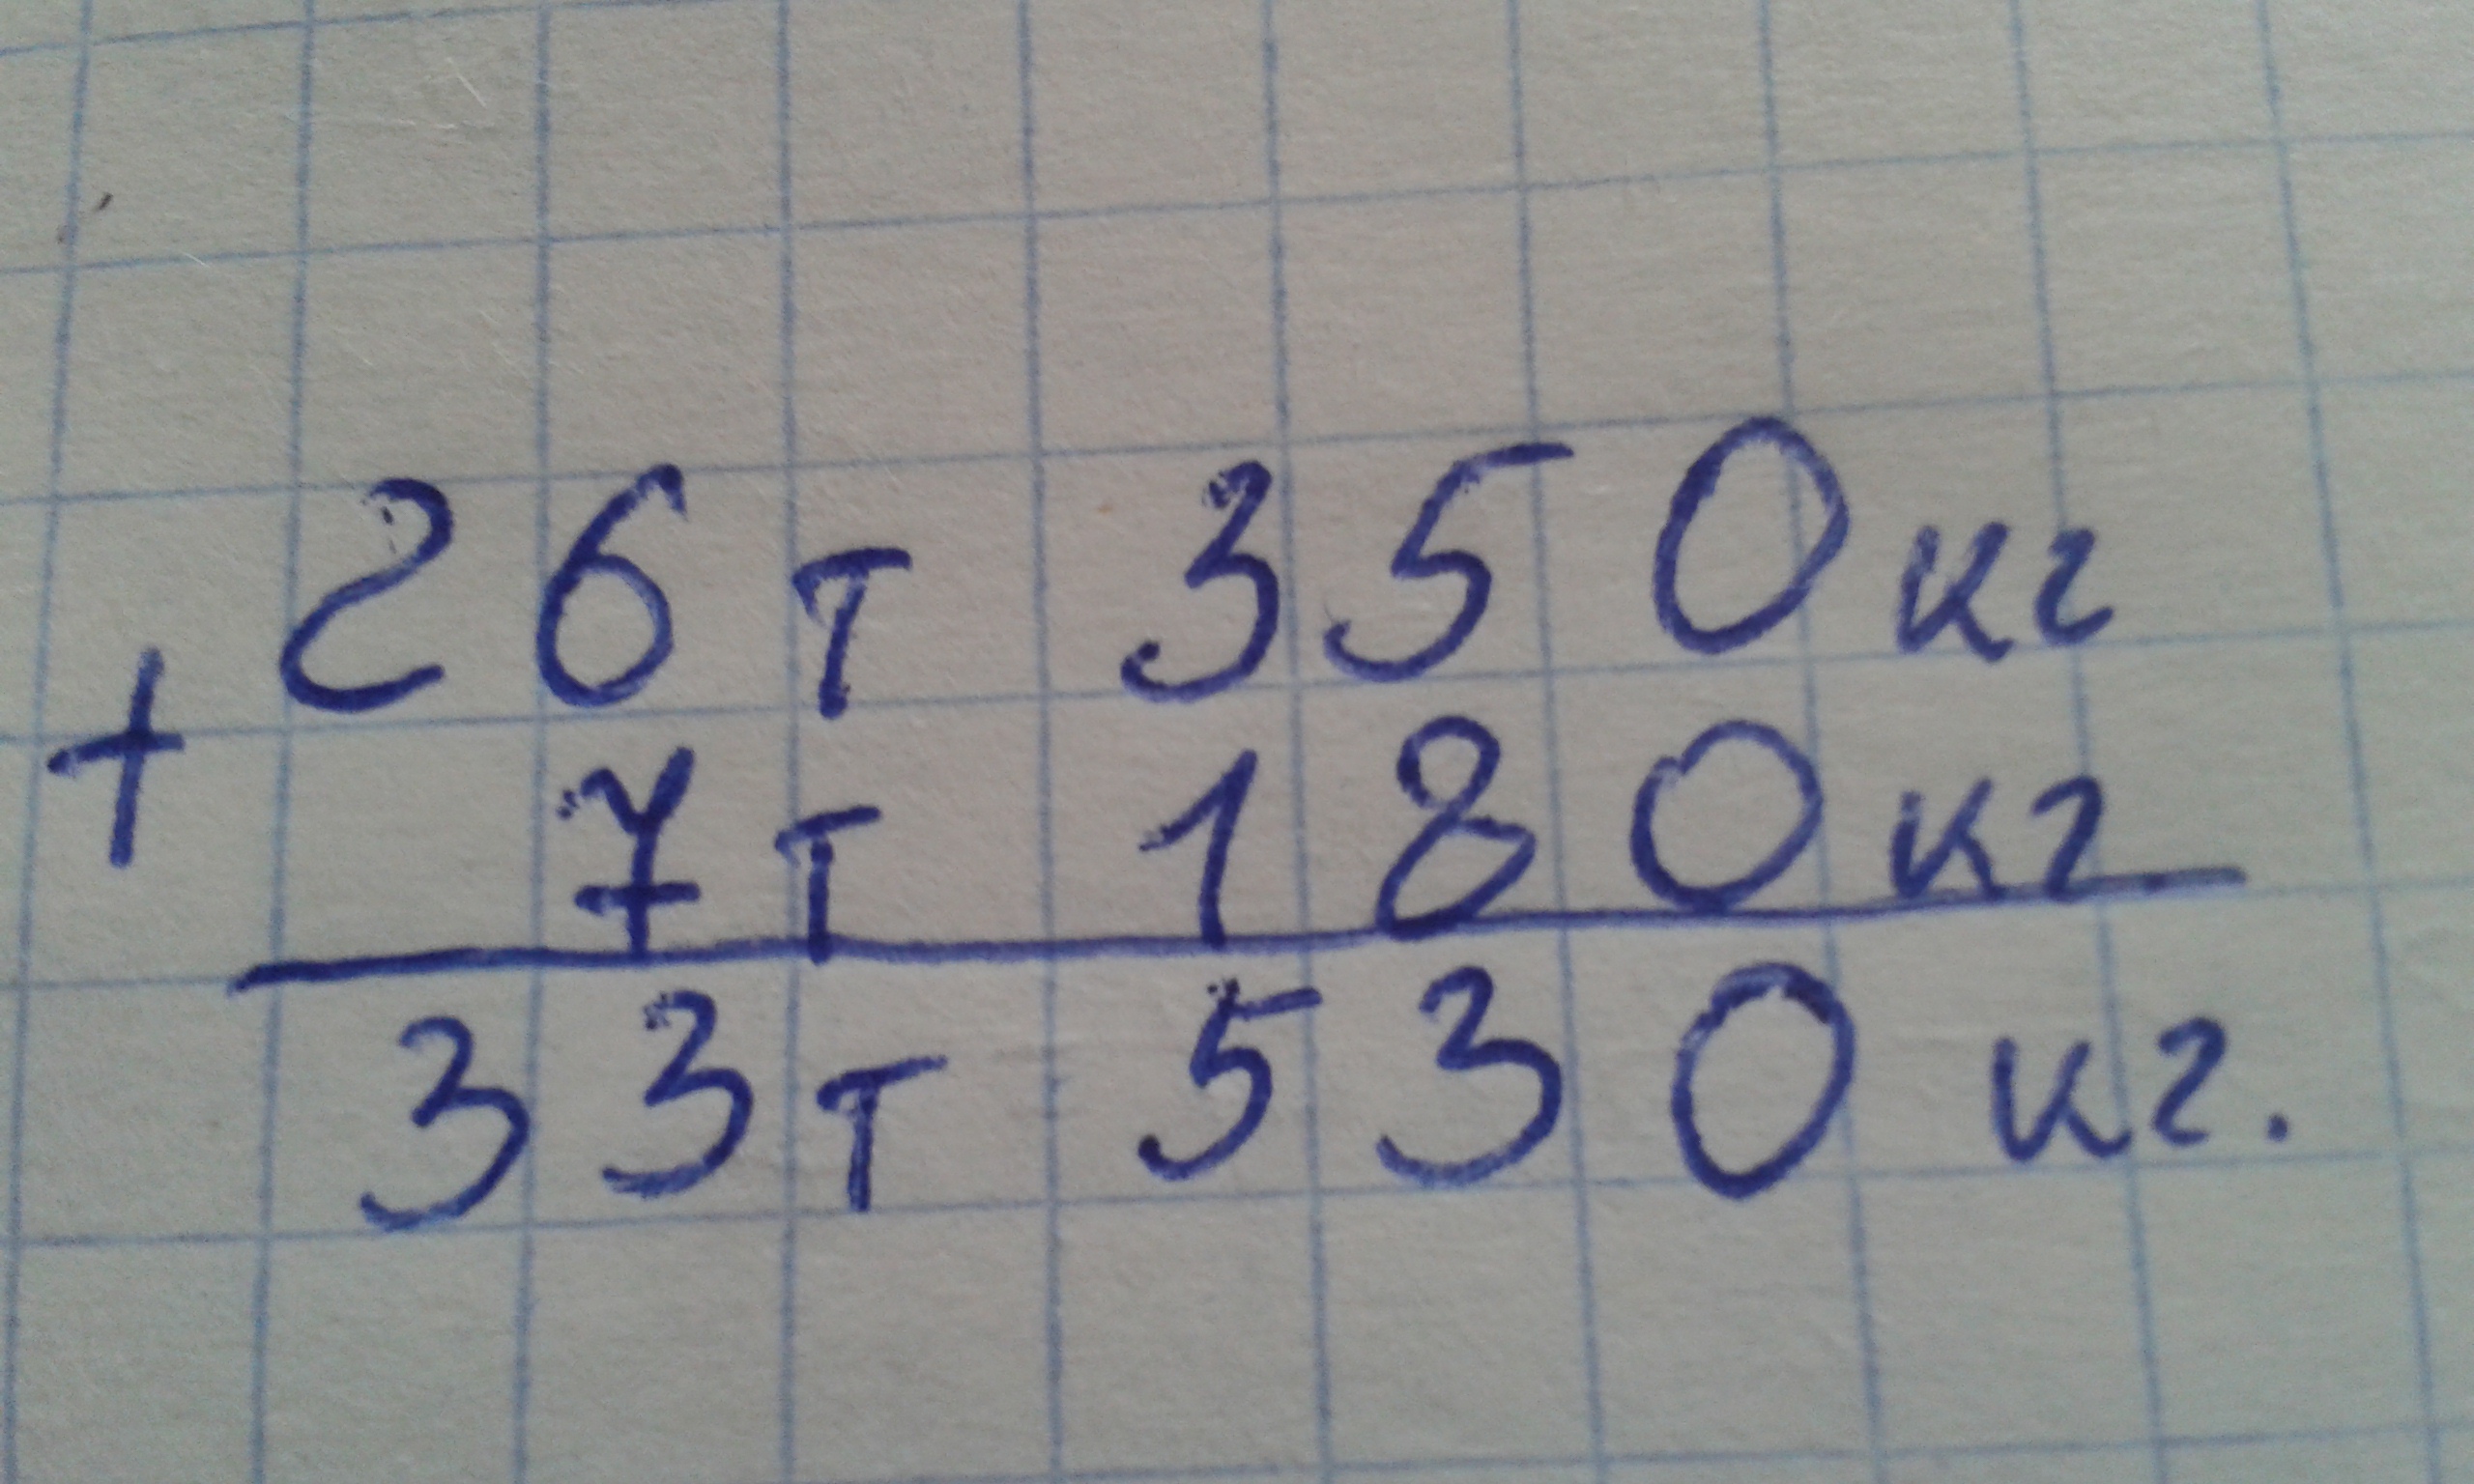 26т 350кг
+
7т 180кг
33т 530 кг.